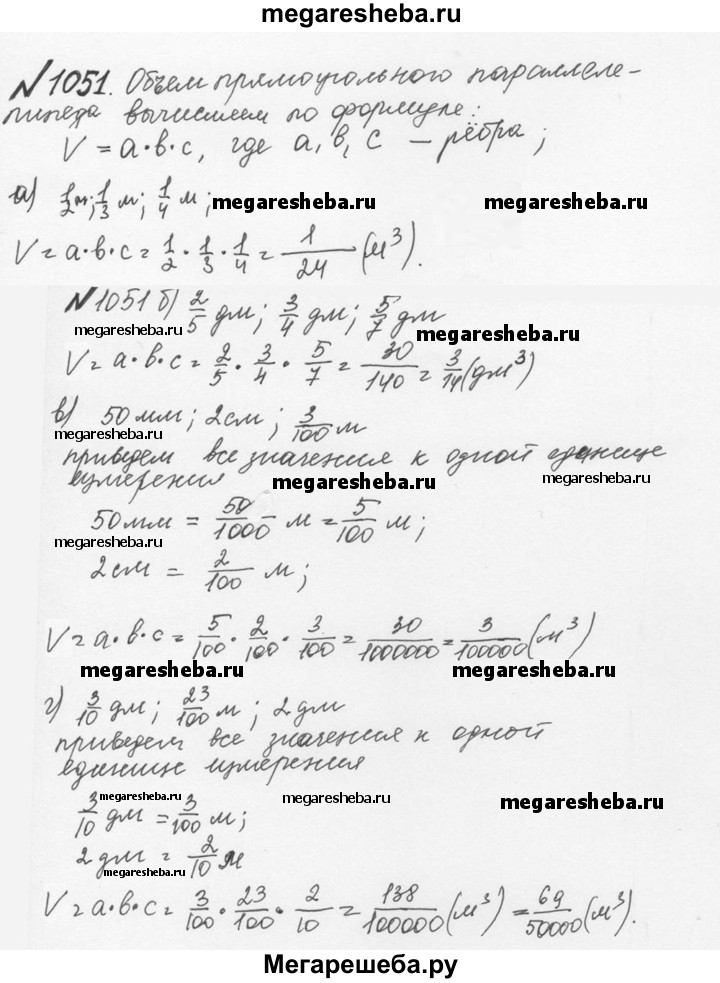 megaresheba.ru
№1051. Объем прямоугольного параллеле-
пипеда вычислием по формуле:
V = a·b·c, где a, b, c – рёбра;
а) 1/2 м; 1/3 м; 1/4 м; megaresheba.ru megaresheba.ru
V = a·b·c = 1/2 · 1/3 · 1/4 = 1/24 (м³).
№1051 б) 2/5 дм; 3/4 дм; 5/7 дм
megaresheba.ru megaresheba.ru
V = a·b·c = 2/5 · 3/4 · 5/7 = 30/140 = 3/14 (дм³)
в) 50 мм; 2 см; 3/100 м
megaresheba.ru
приведем все значения к одной единице
измерения megaresheba.ru megaresheba.ru
50 мм = 50/1000 м = 5/100 м;
megaresheba.ru
2 см = 2/100 м;
V = a·b·c = 5/100 · 2/100 · 3/100 = 30/1000000 = 3/100000 (м³)
megaresheba.ru megaresheba.ru
г) 3/10 дм; 23/100 м; 2 дм
приведем все значения к одной
единице измерения
megaresheba.ru megaresheba.ru megaresheba.ru
3/10 дм = 3/100 м;
2 дм = 2/10 м
V = a·b·c = 3/100 · 23/100 · 2/10 = 138/100000 (м³) = 69/50000 (м³).
Мегарешеба.ру